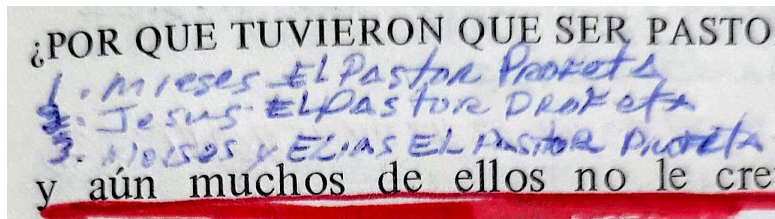 ¿POR QUE TUVIERON QUE SER PASTO
1. Mieses EL PASTOR PROFETA
2. Jesus EL PASTOR PROFETA
3. Moises y ELIAS EL PASTOR PROFETA
y aún muchos de ellos no le cre